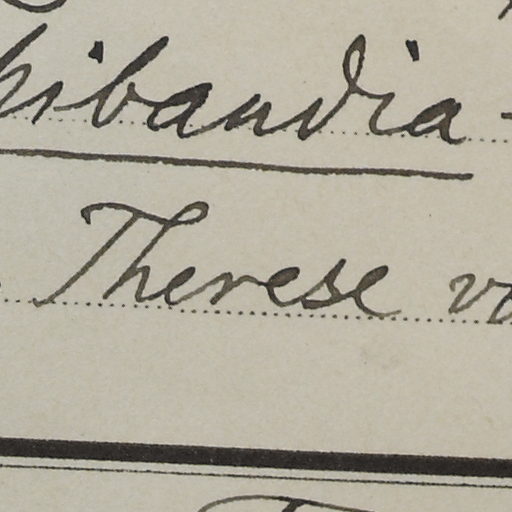 hibandia-
Therese vo